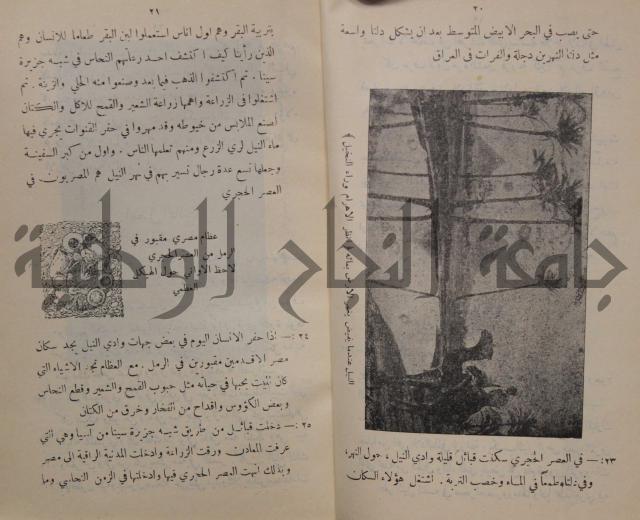 ٢٠
حتى يصب في البحر الابيض المتوسط بعد ان يشكل دلتا واسعة
مثل دلتا النهرين دجلة والفرات في العراق
النيل عندما يفيض يغمر الارض بمائه لاحظ الاهرام وراء النخيل
٢٣ :— في العصر الحجري سكنت قبائل قليلة وادي النيل، حول النهر،
وفي دلتاه طمعاً في الماء وخصب التربة. اشتغل هؤلاء السكان
٢١
بتربية البقر وهم اول اناس استعملوا لبن البقر طعاما للانسان وهم
الذين رأينا كيف اكتشف احد رعاتهم النحاس في شبه جزيرة
سينا. ثم اكتشفوا الذهب فيما بعد وصنعوا منه الحلي والزينة. ثم
اشتغلوا في الزراعة واهمها زراعة الشعير والقمح للاكل والكتان
لصنع الملابس من خيوطه وقد مهروا في حفر القنوات يجري فيها
ماء النيل لري الزرع ومنهم تعلمها الناس. واول من كبر السفينة
وجعلها تسع عدة رجال تسير بهم في نهر النيل هم المصريون في
العصر الحجري
عظام مصري مقبور في
الرمل من العصر الحجري
لاحظ الاواني حول الهيكل
العظمي
٢٤ :— اذا حفر الانسان اليوم في بعض جهات وادي النيل يجد سكان
مصر الاقدمين مقبورين في الرمل. مع العظام تجد الاشياء التي
كان الميت يحبها في حياته مثل حبوب القمح والشعير وقطع النحاس
وبعض الكؤوس واقداح من الفخار وخرق من الكتان
٢٥ :— دخلت قبائل من طريق شبه جزيرة سينا من آسيا وهي التي
عرفت المعادن ورقت الزراعة وادخلت المدنية الراقية الى مصر
وبذلك انهت العصر الحجري فيها وادخلتها في الزمن النحاسي وما
جامعة النجاح الوطنية